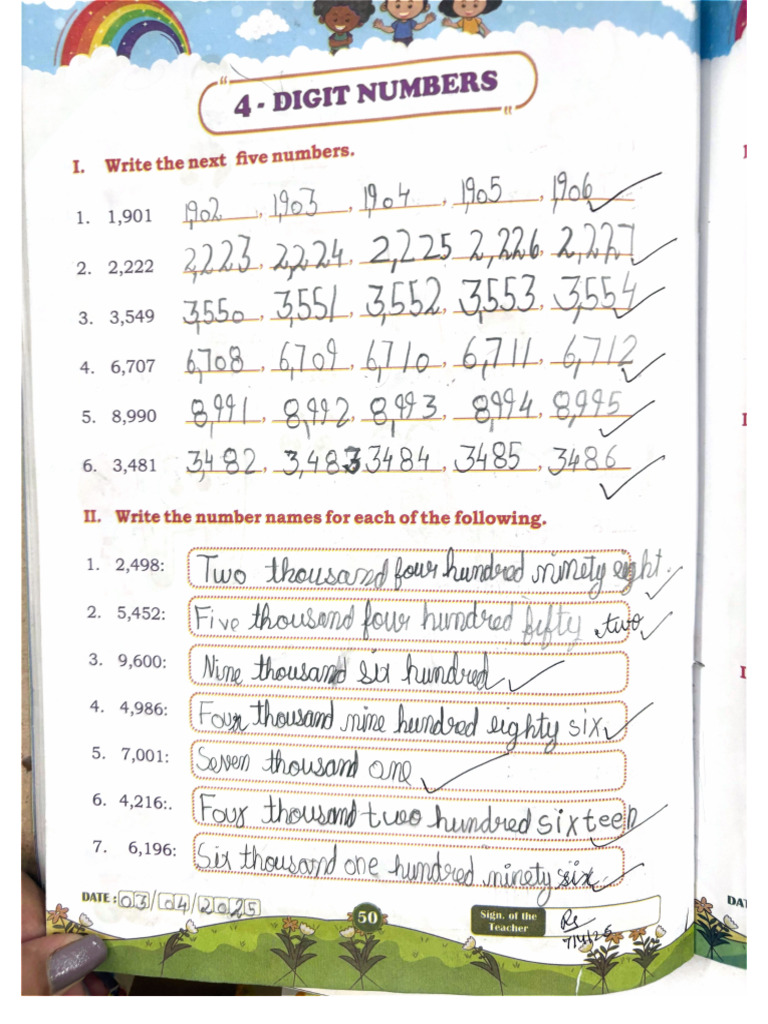 4 - DIGIT NUMBERS
I. Write the next five numbers.
1. 1,901 1,902, 1,903, 1,904, 1,905, 1,906
2. 2,222 2,223, 2,224, 2,225, 2,226, 2,227
3. 3,549 3,550, 3,551, 3,552, 3,553, 3,554
4. 6,707 6,708, 6,709, 6,710, 6,711, 6,712
5. 8,990 8,991, 8,992, 8,993, 8,994, 8,995
6. 3,481 3,482, 3,483 3484, 3485, 3486
II. Write the number names for each of the following.
1. 2,498: Two thousand four hundred ninety eight.
2. 5,452: Five thousand four hundred fifty two
3. 9,600: Nine thousand six hundred
4. 4,986: Four thousand nine hundred eighty six
5. 7,001: Seven thousand one
6. 4,216:. Four thousand two hundred sixteen
7. 6,196: Six thousand one hundred ninety six.
DATE : 03/04/2025
50
Sign. of the
Teacher